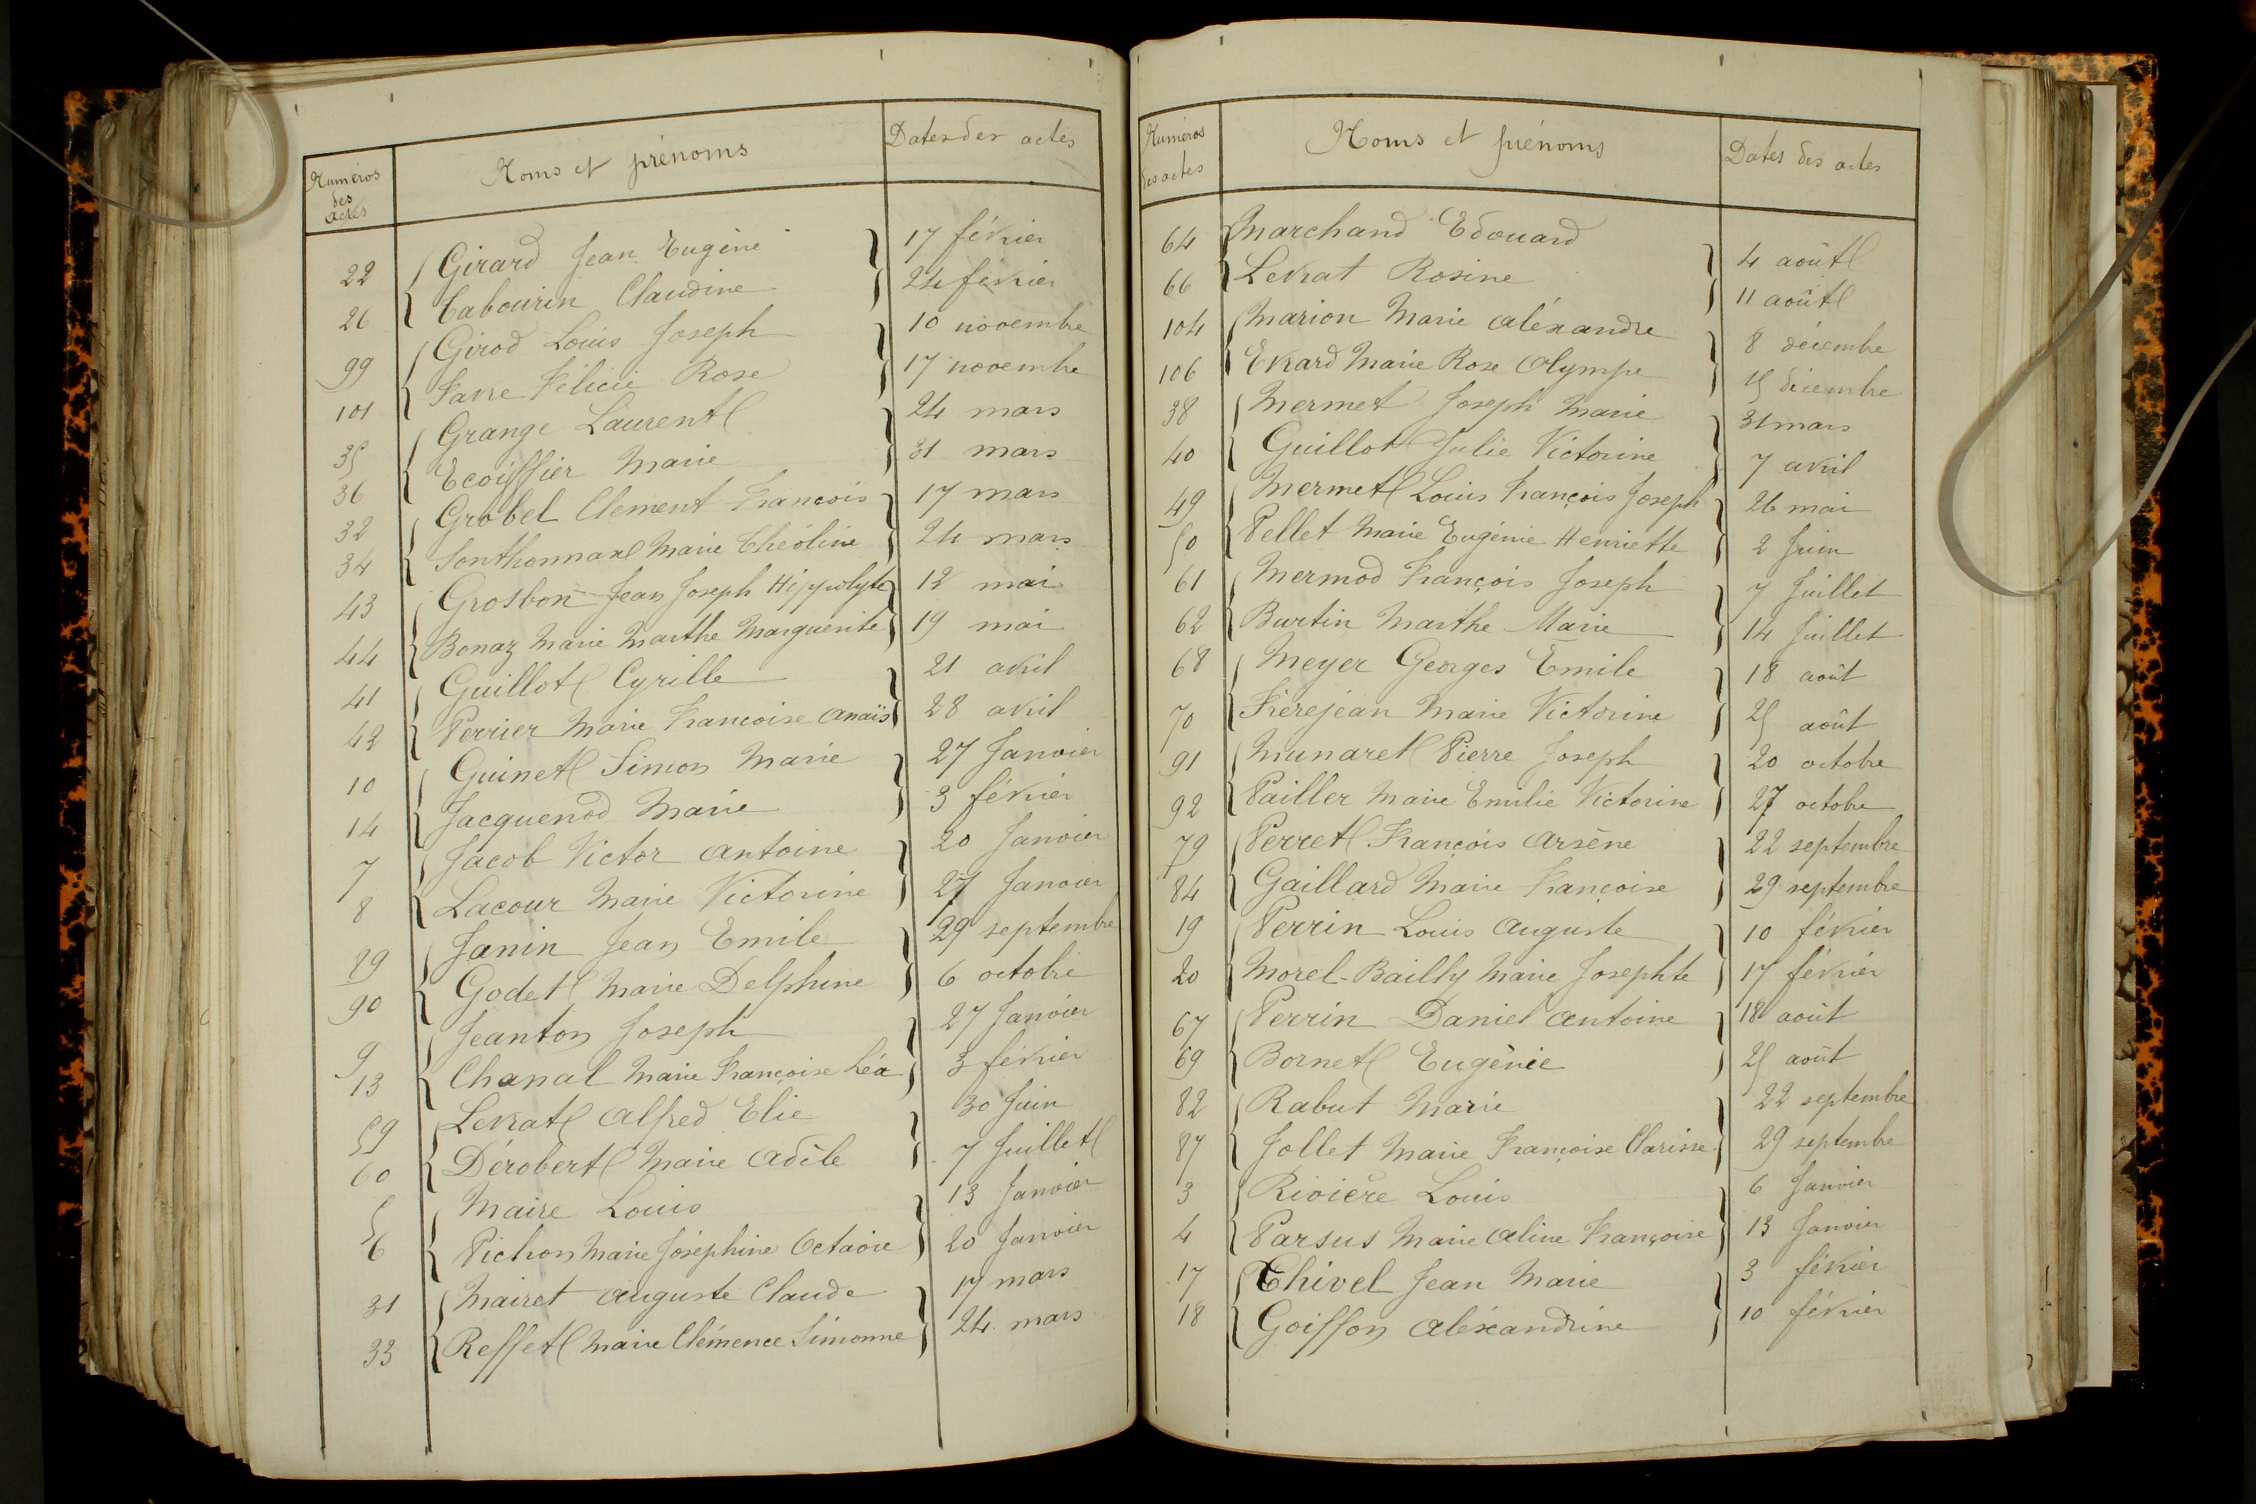 Numéros
des
actes
Noms et prénoms
Dates des actes
22 Girard Jean Eugène 17 février
26 Tabourin Claudine 24 février
99 Girod Louis Joseph 10 novembre
101 Favre Félicie Rose 17 novembre
35 Grange Laurent 24 mars
36 Ecoiffier Marie 31 mars
32 Grobel Clément François 17 mars
34 Sonthonnax Marie Théoline 24 mars
43 Grosbon Jean Joseph Hippolyte 12 mai
44 Bonaz Marie Marthe Marguerite 19 mai
41 Guillot Cyrille 21 avril
42 Perrier Marie Françoise Anaïs 28 avril
10 Guinet Simon Marie 27 Janvier
14 Jacquenod Marie 3 février
7 Jacob Victor Antoine 20 Janvier
8 Lacour Marie Victorine 27 Janvier
89 Janin Jean Emile 29 septembre
90 Godet Marie Delphine 6 octobre
9 Jeanton Joseph 27 Janvier
13 Chanal Marie Françoise Léa 3 février
59 Levrat Alfred Elie 30 Juin
60 Dérobert Marie Adèle 7 Juillet
5 Maire Louis 13 Janvier
6 Pichon Marie Joséphine Octavie 20 Janvier
31 Mairet Auguste Claude 17 mars
33 Reffet Marie Clémence Simonne 24 mars
Numéros
des actes
Noms et prénoms
Dates des actes
64 Marchand Edouard 4 août
66 Levrat Rosine 11 août
104 Marion Marie Aléxandre 8 décembre
106 Evrard Marie Rose Olympe 15 décembre
38 Mermet Joseph Marie 31 mars
40 Guillot Julie Victorine 7 avril
49 Mermet Louis François Joseph 26 mai
50 Pellet Marie Eugénie Henriette 2 Juin
61 Mermod François Joseph 7 Juillet
62 Burtin Marthe Marie 14 Juillet
68 Meyer Georges Emile 18 août
70 Frèrejean Marie Victorine 25 août
91 Munaret Pierre Joseph 20 octobre
92 Pailler Marie Emilie Victorine 27 octobre
79 Perret François Arsène 22 septembre
84 Gaillard Marie Françoise 29 septembre
19 Perrin Louis Auguste 10 février
20 Morel-Bailly Marie Josephte 17 février
67 Perrin Daniel Antoine 18 août
69 Bornet Eugènie 25 août
82 Rabut Marie 22 septembre
87 Jollet Marie Françoise Clarisse 29 septembre
3 Rivière Louis 6 Janvier
4 Parsus Marie Aline Françoise 13 Janvier
17 Thivel Jean Marie 3 février
18 Goiffon Aléxandrine 10 février